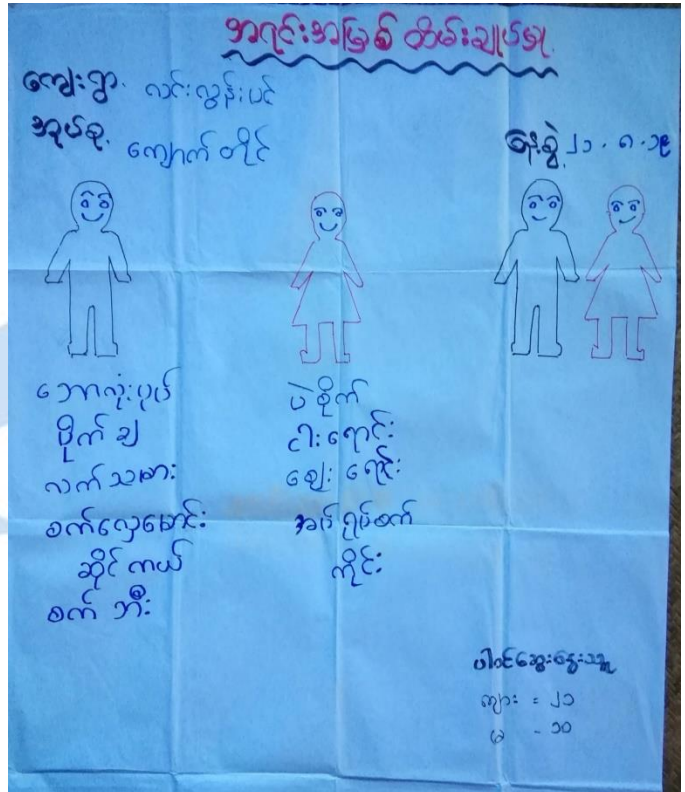 အရင်းအမြစ် ထိမ်းချုပ်မှု
ကျေးရွာ. လင်းလွန်းပင်
အုပ်စု. ကျောက်တိုင်
နေ့စွဲ ၂၁.၈.၁၉
ဘောလုံးပုတ်
ပိုက်ချ
လက်သမား
စက်လှေမောင်း
ဆိုင်ကယ်
စက်ဘီး
ပဲစိုက်
ငါးရောင်း
ဈေးရောင်း
အပ်ချုပ်စက်
ကိုင်း
ပါဝင်ဆွေးနွေးသူ
ကျား = ၂၁
မ - ၁၀